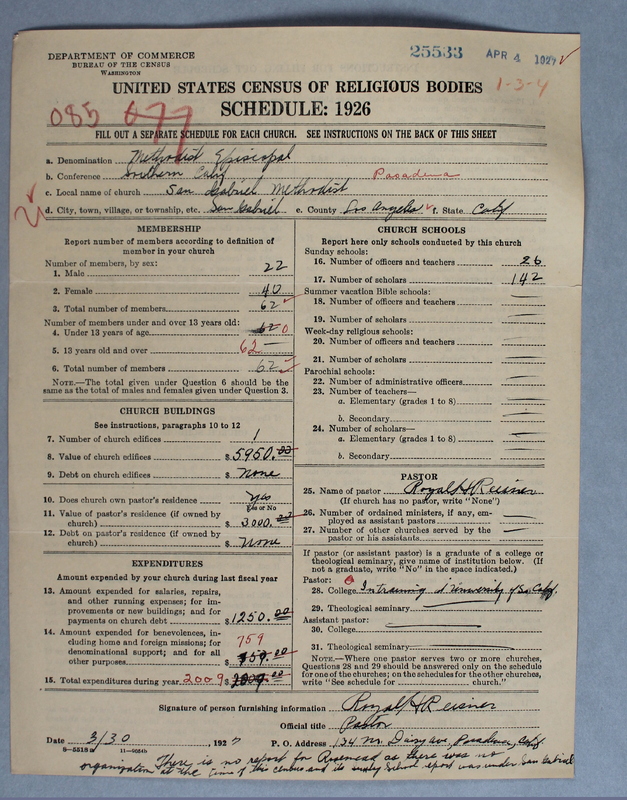 DEPARTMENT OF COMMERCE
BUREAU OF THE CENSUS
WASHINGTON
25533 APR 4 1927
UNITED STATES CENSUS OF RELIGIOUS BODIES
1-3-4
SCHEDULE: 1926
085 677
FILL OUT A SEPARATE SCHEDULE FOR EACH CHURCH. SEE INSTRUCTIONS ON THE BACK OF THIS SHEET
a. Denomination Methodist Episcopal
b. Conference Southern Calif Pasadena
c. Local name of church San Gabriel Methodist
d. City, town, village, or township, etc. San Gabriel e. County Los Angeles f. State Calif
MEMBERSHIP
Report number of members according to definition of
member in your church
Number of members, by sex:
1. Male 22
2. Female 40
3. Total number of members 62
Number of members under and over 13 years old:
4. Under 13 years of age 62 0
5. 13 years old and over 62 —
6. Total number of members 62
NOTE.—The total given under Question 6 should be
same as the total of males and females given under Question 3.
CHURCH BUILDINGS
See instructions, paragraphs 10 to 12
7. Number of church edifices 1
8. Value of church edifices $ 5950.00
9. Debt on church edifices $ None
10. Does church own pastor's residence Yes
Yes or No
11. Value of pastor's residence (if owned by
church) $ 3000.00
12. Debt on pastor's residence (if owned by
church) $ None
EXPENDITURES
Amount expended by your church during last fiscal year
13. Amount expended for salaries, repairs,
and other running expenses; for im-
provements or new buildings; and for
payments on church debt $ 1250.00
14. Amount expended for benevolences, in-
cluding home and foreign missions; for 759
denominational support; and for all
other purposes $ 759.00
15. Total expenditures during year 2009 $ 2009.00
CHURCH SCHOOLS
Report here only schools conducted by this church
Sunday schools:
16. Number of officers and teachers 26
17. Number of scholars 142
Summer vacation Bible schools:
18. Number of officers and teachers —
19. Number of scholars —
Week-day religious schools:
20. Number of officers and teachers —
21. Number of scholars —
Parochial schools:
22. Number of administrative officers —
23. Number of teachers—
a. Elementary (grades 1 to 8) —
b. Secondary —
24. Number of scholars—
a. Elementary (grades 1 to 8) —
b. Secondary —
PASTOR
25. Name of pastor Royal H Reisner
(If church has no pastor, write "None")
26. Number of ordained ministers, if any, em-
ployed as assistant pastors —
27. Number of other churches served by the
pastor or his assistants —
If pastor (or assistant pastor) is a graduate of a college or
theological seminary, give name of institution below. (If
not a graduate, write "No" in the space indicated.)
Pastor: 0
28. College In training at University of So. Calif.
29. Theological seminary —
Assistant pastor:
30. College —
31. Theological seminary —
NOTE.—Where one pastor serves two or more churches,
Questions 28 and 29 should be answered only on the schedule
for one of the churches; on the schedules for the other churches,
write "See schedule for church."
Signature of person furnishing information Royal H Reisner
Official title Pastor
Date 3/30, 1927 P. O. Address 134 N. Daisy ave, Pasadena, Calif.
8—5518a 11—9554b
There is no report for Rosemead as there was no
organization at the time of this census and its Sunday School report was under San Gabriel